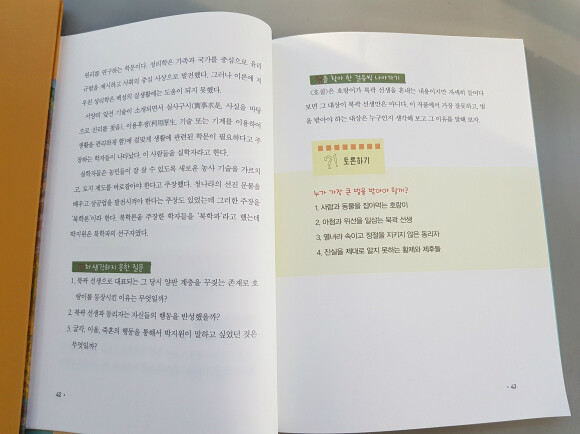 원리를 연구하는 학문이다. 성리학은 가족과 국가를 중심으로 윤리
규범을 제시하고 사회의 중심 사상으로 발전했다. 그러나 이론에 치
우친 성리학은 백성의 실생활에는 도움이 되지 못했다.
서양의 앞선 기술이 소개되면서 실사구시(實事求是, 사실을 바탕
으로 진리를 찾음), 이용후생(利用厚生, 기술 또는 기계를 이용하여
생활을 편리하게 함)에 걸맞게 생활에 관련된 학문이 필요하다고 주
장하는 학자들이 나타났다. 이 사람들을 실학자라고 한다.
실학자들은 농민들이 잘 살 수 있도록 새로운 농사 기술을 가르치
고, 토지 제도를 바로잡아야 한다고 주장했다. 청나라의 선진 문물을
배우고 상공업을 발전시켜야 한다는 주장도 있었는데 그러한 주장을
'북학론'이라 한다. 북학론을 주장한 학자들을 '북학파'라고 했는데
박지원은 북학파의 선구자였다.
미처 생각하지 못한 질문
1. 북곽 선생으로 대표되는 그 당시 양반 계층을 꾸짖는 존재로 호
랑이를 등장시킨 이유는 무엇일까?
2. 북곽 선생과 동리자는 자신들의 행동을 반성했을까?
3. 굴각, 이올, 육혼의 행동을 통해서 박지원이 말하고 싶었던 것은
무엇일까?
42
좀 더 한 걸음씩 나아가기
〈호질〉은 호랑이가 북곽 선생을 혼내는 내용이지만 자세히 들여다
보면 그 대상이 북곽 선생만은 아니다. 이 작품에서 가장 잘못하고, 벌
을 받아야 하는 대상은 누구인지 생각해 보고 그 이유를 말해 보자.
토론하기
누가 가장 큰 벌을 받아야 할까?
1. 사람과 동물을 잡아먹는 호랑이
2. 아첨과 위선을 일삼는 북곽 선생
3. 열녀라 속이고 정절을 지키지 않은 동리자
4. 진실을 제대로 알지 못하는 황제와 제후들
43